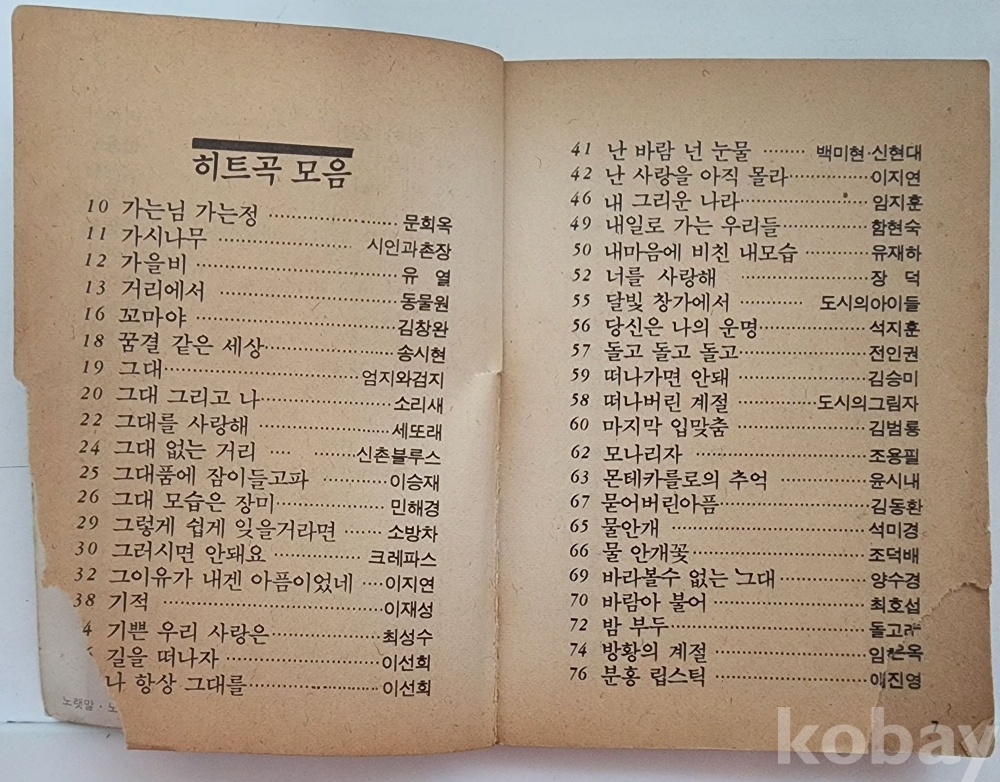 히트곡 모음
10 가는님 가는정 문희옥
11 가시나무 시인과촌장
12 가을비 유 열
13 거리에서 동물원
16 꼬마야 김창완
18 꿈결 같은 세상 송시현
19 그대 엄지와검지
20 그대 그리고 나 소리새
22 그대를 사랑해 세또래
24 그대 없는 거리 신촌블루스
25 그대품에 잠이들고파 이승재
26 그대 모습은 장미 민해경
29 그렇게 쉽게 잊을거라면 소방차
30 그러시면 안돼요 크레파스
32 그이유가 내겐 아픔이었네 이지연
38 기적 이재성
4 기쁜 우리 사랑은 최성수
길을 떠나자 이선희
나 항상 그대를 이선희
노랫말
41 난 바람 넌 눈물 백미현·신현대
42 난 사랑을 아직 몰라 이지연
46 내 그리운 나라 임지훈
49 내일로 가는 우리들 함현숙
50 내마음에 비친 내모습 유재하
52 너를 사랑해 장 덕
55 달빛 창가에서 도시의아이들
56 당신은 나의 운명 석지훈
57 돌고 돌고 돌고 전인권
59 떠나가면 안돼 김승미
58 떠나버린 계절 도시의그림자
60 마지막 입맞춤 김범룡
62 모나리자 조용필
63 몬테카를로의 추억 윤시내
67 묻어버린아픔 김동환
65 물안개 석미경
66 물 안개꽃 조덕배
69 바라볼수 없는 그대 양수경
70 바람아 불어 최호섭
72 밤 부두 돌고래
74 방황의 계절
76 분홍 립스틱
7
kobay